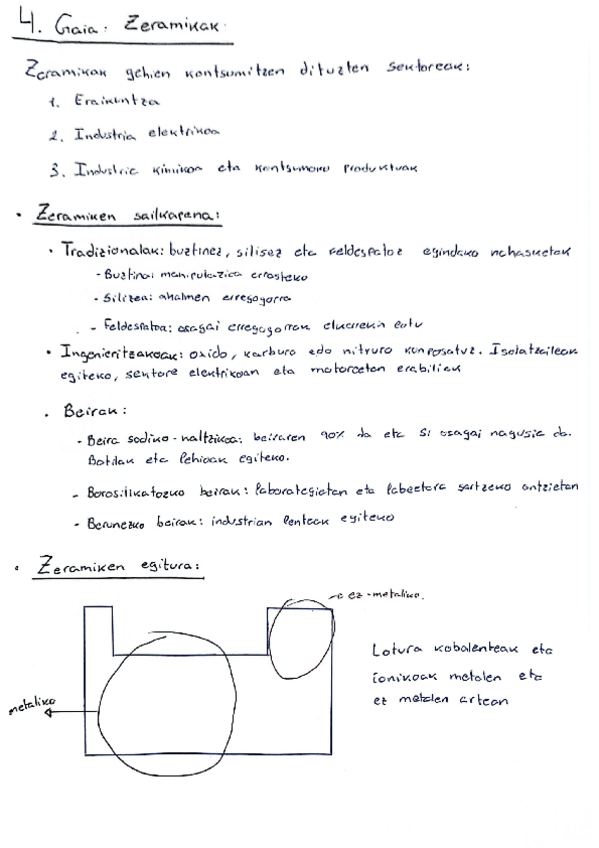 4. Gaia: Zeramikak:
Zeramikak gehien kontsumitzen dituzten sektoreak:
1. Eraikuntza
2. Industria elektrikoa
3. Industria kimikoa eta kontsumoko produktuak
• Zeramiken sailkapena:
• Tradizionalak: buztinez, silizez eta feldespatoz egindako nahasketak
- Buztina: manipulazioa errazteko
- Silizea: ahalmen erregogorra
- Feldespatoa: osagai erregogorrak elkarrekin lotu
• Ingenieritzakoak: oxido, karburo edo nitruro konposatuz. Isolatzaileak
egiteko, sektore elektrikoan eta motoretan erabiliak
• Beirak:
- Beira sodiko-kaltzikoa: beiraren 90% da eta Si osagai nagusia da.
Botilak eta lehioak egiteko.
- Borosilikatozko beirak: laborategietan eta labeetara sartzeko ontzietan
- Berunezko beirak: industrian lenteak egiteko
• Zeramiken egitura:
ez-metaliko.
Lotura kobalenteak eta
ionikoak metalen eta
ez metalen artean
metaliko